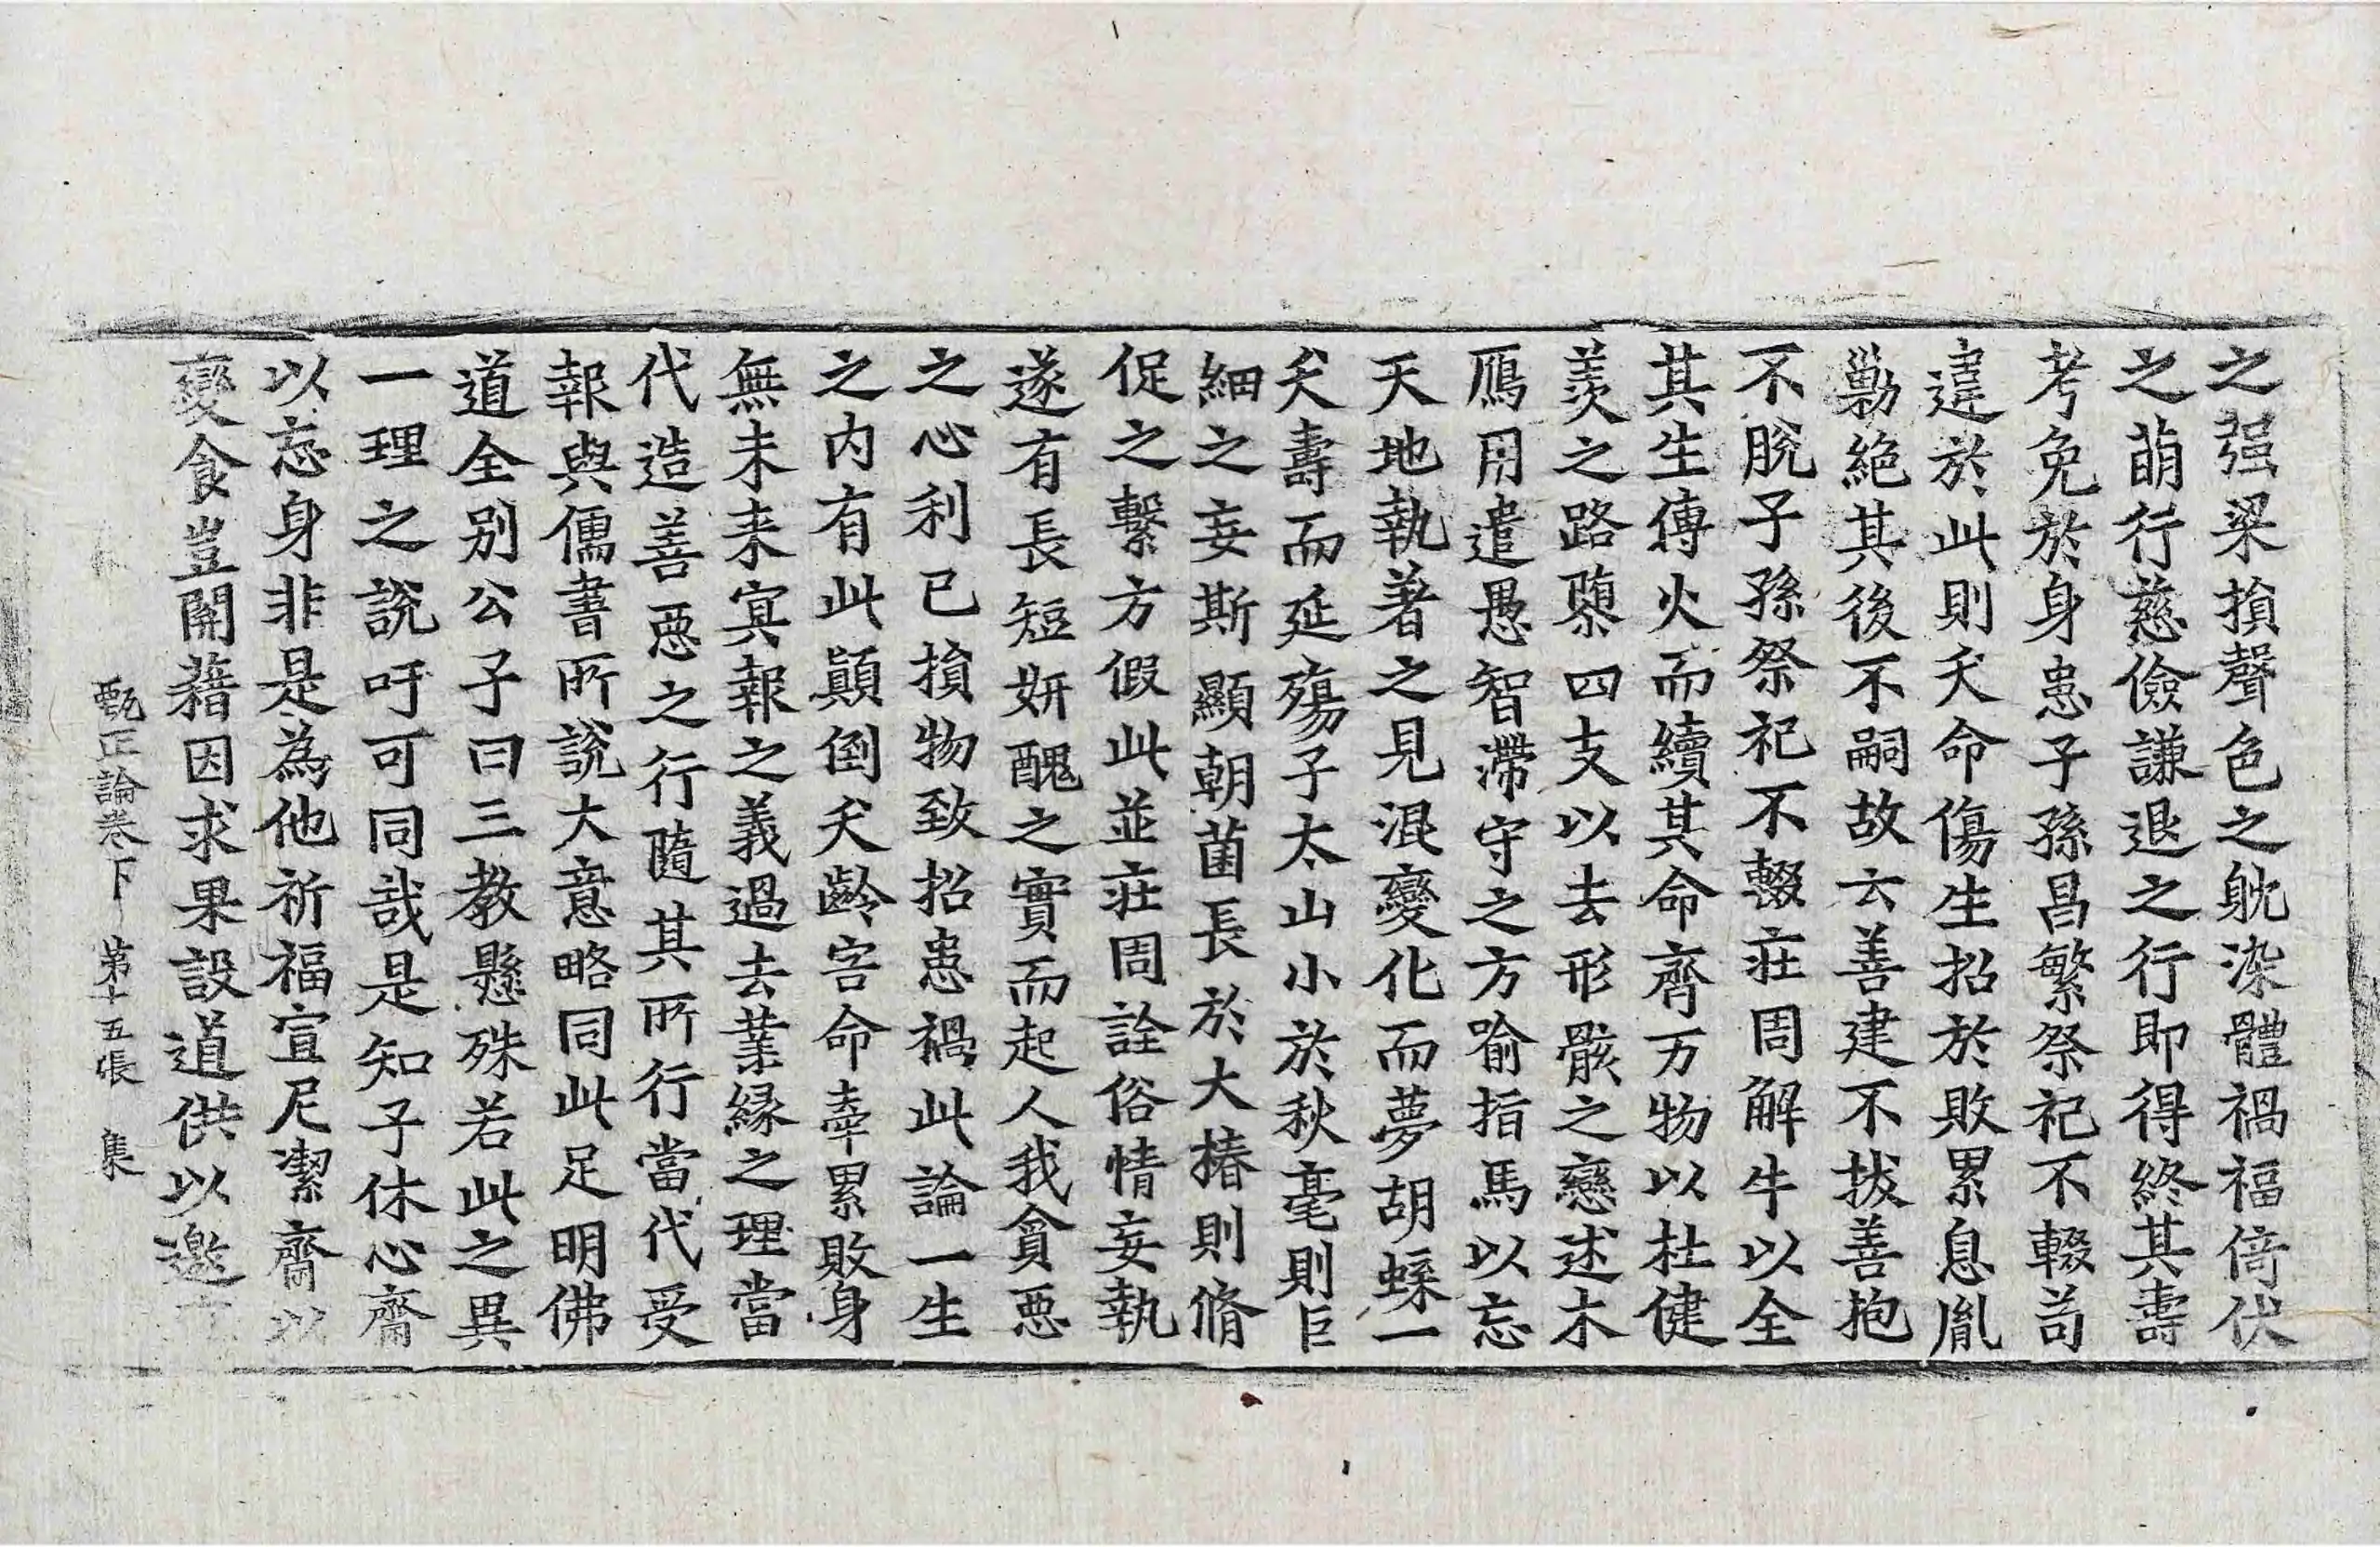 之强梁損聲色之躭染體禍福倚伏
之萌行慈儉謙退之行即得終其壽
考免於身患子孫昌繁祭祀不輟苟
違於此則夭命傷生招於敗累息胤
勦絕其後不嗣故云善建不拔善抱
不脫子孫祭祀不輟莊周解牛以全
其生傳火而續其命齊万物以杜健
羨之路隳四支以去形骸之戀述木
鴈用遣愚智滯守之方喻指馬以忘
天地執著之見混變化而夢胡蝶一
夭壽而延殤子太山小於秋毫則巨
細之妄斯顯朝菌長於大椿則脩
促之繫方假此並莊周詮俗情妄執
遂有長短妍醜之實而起人我貪惡
之心利己損物致招患禍此論一生
之內有此顛倒夭齡害命牽累敗身
無未来冥報之義過去業緣之理當
代造善惡之行隨其所行當代受
報與儒書所說大意略同此足明佛
道全別公子曰三教懸殊若此之異
一理之說吁可同哉是知子休心齋
以忘身非是為他祈福宣尼潔齋以
變食豈開藉因求果設道供以邀
甄正論卷下 第十五張 集